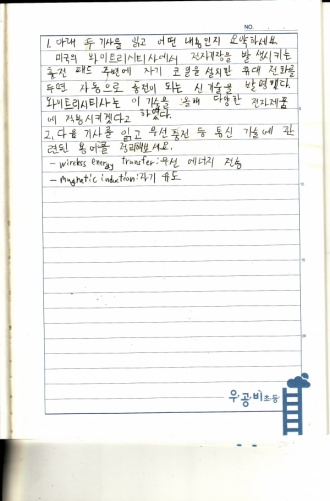 NO.
1. 아래 두 기사를 읽고 어떤 내용인지 요약하세요.
미국의 와이트리시티사에서 전자기장을 발생시키는
충전 패드 주변에 자기 코일을 설치한 휴대 전화를
두면 자동으로 충전이 되는 신기술을 발명했다.
와이트리시티사는 이 기술을 올해 다양한 전자제품
에 적용시키겠다고 하였다.
2. 다음 기사를 읽고 무선 충전 등 통신 기술에 관
련된 용어를 정리해보세요.
- wireless energy transfer: 무선 에너지 전송
- Magnetic induction: 자기 유도
우공비초등